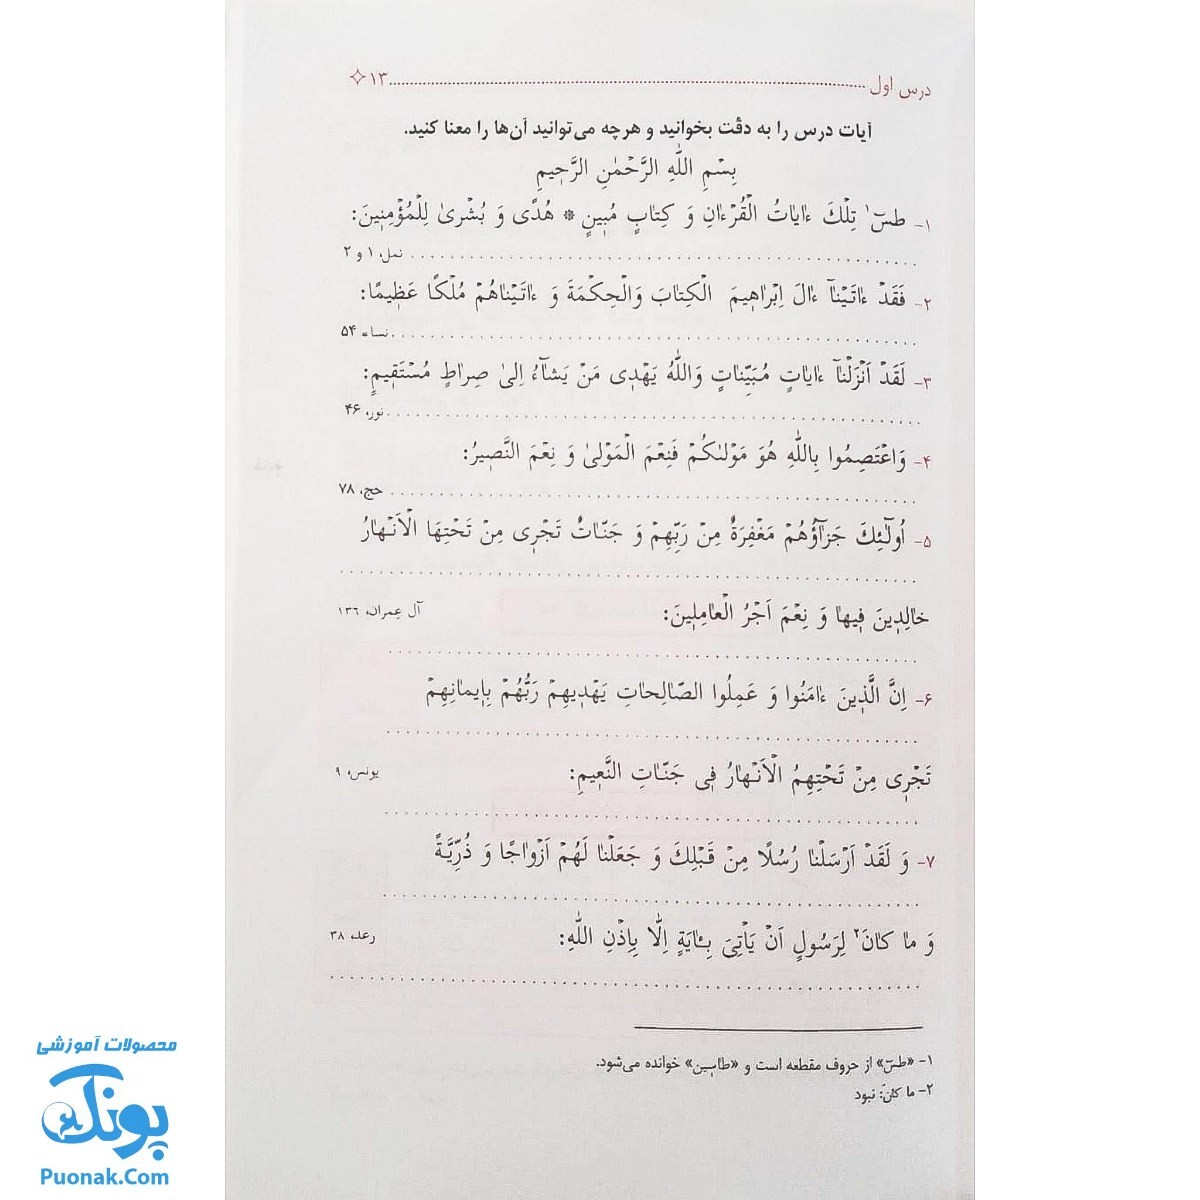 درس اول ........................ ۱۳
آیات درس را به دقّت بخوانید و هرچه می‌توانید آن‌ها را معنا کنید.
بِسْمِ اللّٰهِ الرَّحْمٰنِ الرَّحیمِ
۱- طسٓ ۱ تِلْكَ ءایاتُ الْقُرْءانِ وَ كِتابٍ مُبینٍ * هُدًى وَ بُشْرىٰ لِلْمُؤْمِنینَ:
نمل، ۱ و ۲
۲- فَقَدْ ءاتَیْنآ ءالَ اِبْراهیمَ الْكِتابَ وَالْحِكْمَةَ وَ ءاتَیْناهُمْ مُلْكًا عَظیمًا:
نساء، ۵۴
۳- لَقَدْ اَنْزَلْنآ ءایاتٍ مُبَیِّناتٍ وَاللّٰهُ یَهْدی مَنْ یَشآءُ اِلىٰ صِراطٍ مُسْتَقیمٍ:
نور، ۴۶
۴- وَاعْتَصِمُوا بِاللّٰهِ هُوَ مَوْلىٰكُمْ فَنِعْمَ الْمَوْلىٰ وَ نِعْمَ النَّصیرُ:
حج، ۷۸
۵- اُولٰٓئِكَ جَزآؤُهُمْ مَغْفِرَةٌ مِنْ رَبِّهِمْ وَ جَنّاتٌ تَجْری مِنْ تَحْتِهَا الْاَنْهارُ
خالِدینَ فیها وَ نِعْمَ اَجْرُ الْعامِلینَ:
آل عِمران، ۱۳۶
۶- اِنَّ الَّذینَ ءامَنُوا وَ عَمِلُوا الصّالِحاتِ یَهْدیهِمْ رَبُّهُمْ بِایمانِهِمْ
تَجْری مِنْ تَحْتِهِمُ الْاَنْهارُ فی جَنّاتِ النَّعیمِ:
یونس، ۹
۷- وَ لَقَدْ اَرْسَلْنا رُسُلًا مِنْ قَبْلِكَ وَ جَعَلْنا لَهُمْ اَزْواجًا وَ ذُرِّیَّةً
وَ ما كانَ ۲ لِرَسُولٍ اَنْ یَأْتِیَ بِـٔایَةٍ اِلّا بِاِذْنِ اللّٰهِ:
رعد، ۳۸
۱- «طسٓ» از حروف مقطعه است و «طاسین» خوانده می‌شود.
۲- ما کانَ: نبود
محصولات آموزشی
پونک
Puonak.Com